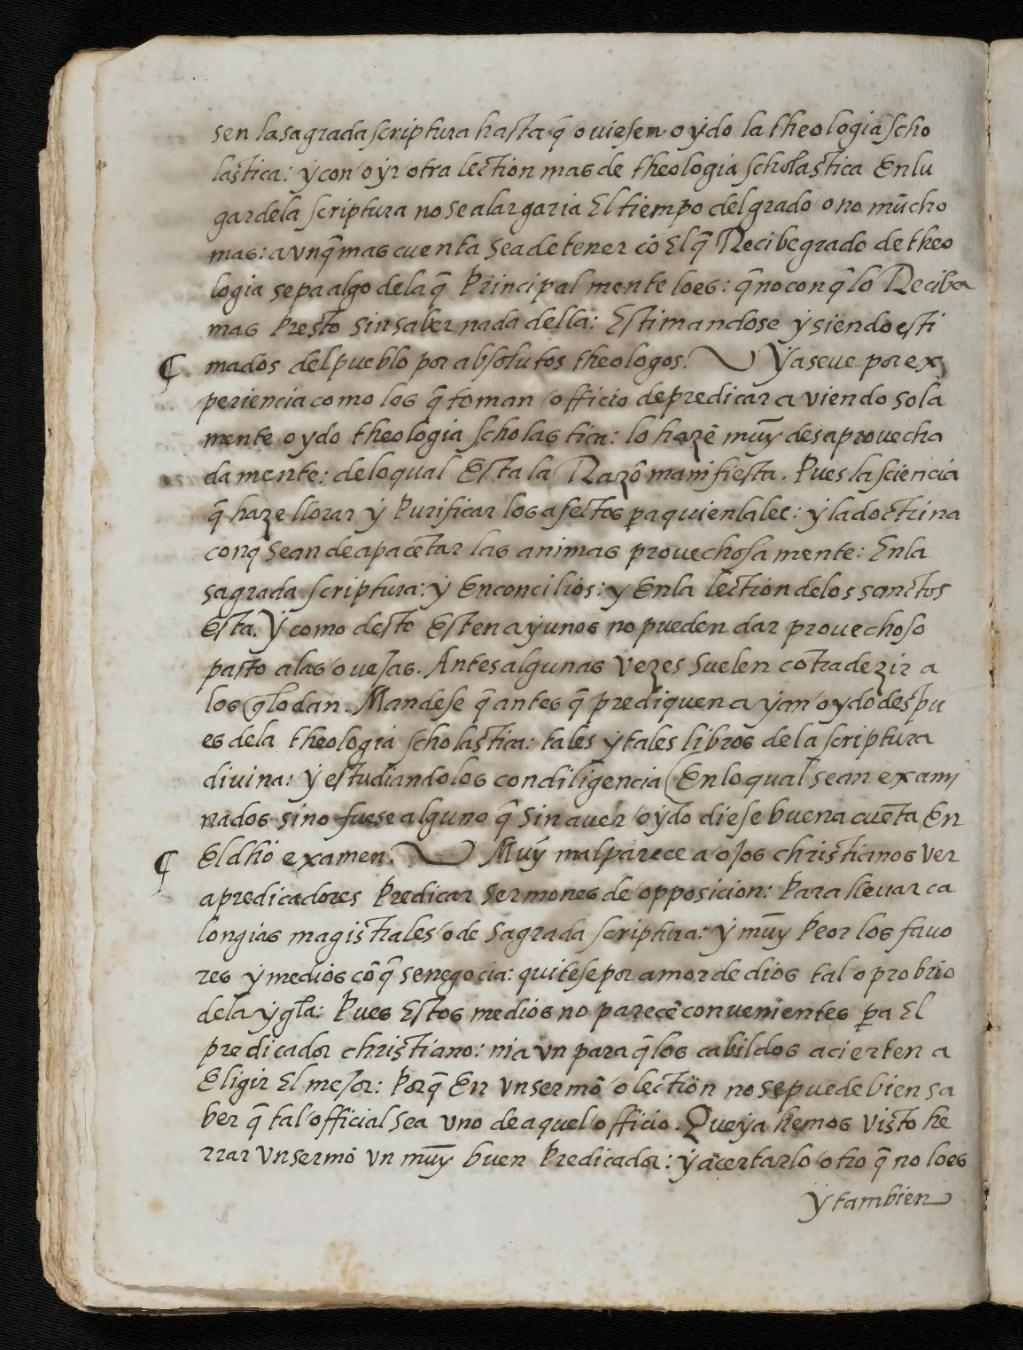 sen la sagrada scriptura hasta q̃ ouiesen oydo la theologia scho
lastica: y con oyr otra lection mas de theologia scholastica En lu
gar de la scriptura no se alargaria El tiempo del grado o no mũcho
mas: a vnq̃ mas cuenta sea de tener cõ El q̃ Recibe grado de theo
logia sepa algo de la q̃ Principal mente lo es: q̃ no con q̃ lo Reciba
mas presto sin saber nada della: Estimandose y siendo esti
¶ mados del pueblo por absolutos theologos. Ya se ve por ex
periencia como los q̃ toman officio de predicar a viendo sola
mente oydo theologia scholastica: lo hazẽ muy desaprouecha
da mente: de lo qual Esta la Razõ manifiesta. Pues la sciencia
q̃ haze llorar y Purificar los afectos pa quien la lee: y la doctrina
con q sean de apacẽtar las animas prouechosa mente: En la
sagrada scriptura: y En concilios: y En la lection de los sanctos
Esta. Y como desto Esten ayunos no pueden dar prouechoso
pasto a las ouejas. Antes algunas vezes suelen cõtradezir a
los q̃ lo dan. Mandese q̃ antes q̃ prediquen ayan oydo despu
es de la theologia scholastica: tales y tales libros de la scriptura
diuina: y estudiandolos con diligencia En lo qual sean exami
nados sino fuese alguno q̃ sin auer oydo diese buena cuẽta En
¶ El dhõ examen. Muy mal parece a ojos christianos ver
a predicadores Predicar sermones de opposicion: Para lleuar ca
longias magistrales o de sagrada scriptura: y muy Peor los fauo
res y medios cõ q̃ se negocia: quitese por amor de dios tal oprobrio
de la ygla: Pues Estos medios no parecẽ conuenientes pa El
predicador christiano: ni a vn para q̃ los cabildos acierten a
Eligir El mejor: Porq̃ En vn sermõ o lectiõn no se puede bien sa
ber q̃ tal official sea vno de aquel officio. Que ya hemos visto he
rrar vn sermõ vn muy buen Predicador: y acertarlo otro q̃ no lo es
y tambien